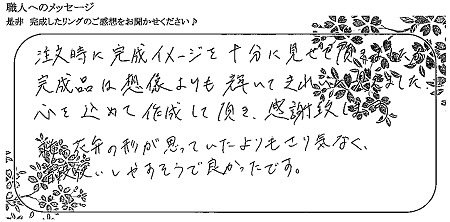 職人へのメッセージ
是非 完成したリングのご感想をお聞かせください♪
注文時に完成イメージを十分に見せて頂きました
完成品は想像よりも輝いてきれいでした
心を込めて作成して頂き、感謝致し
花弁の形が思っていたよりもさり気なく、
いしやすそうで良かったです。